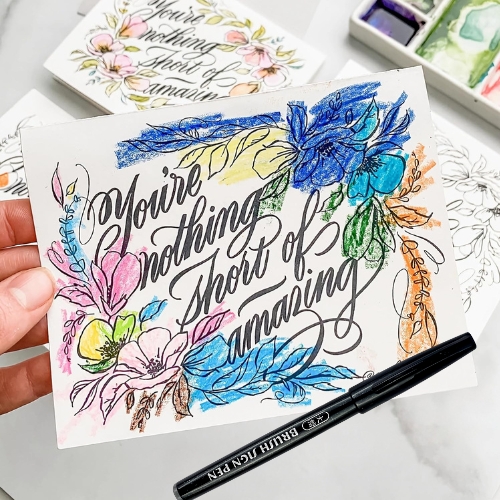 You're
nothing
short of
amazing
You're
nothing
short of
amazing
BRUSH SIGN PEN